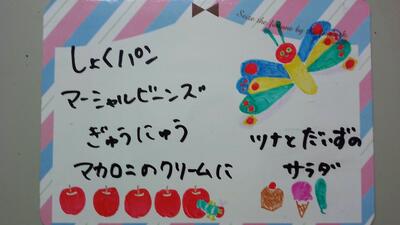 しょくパン
マーシャルビーンズ
ぎゅうにゅう
マカロニのクリームに
ツナとだいずの
サラダ